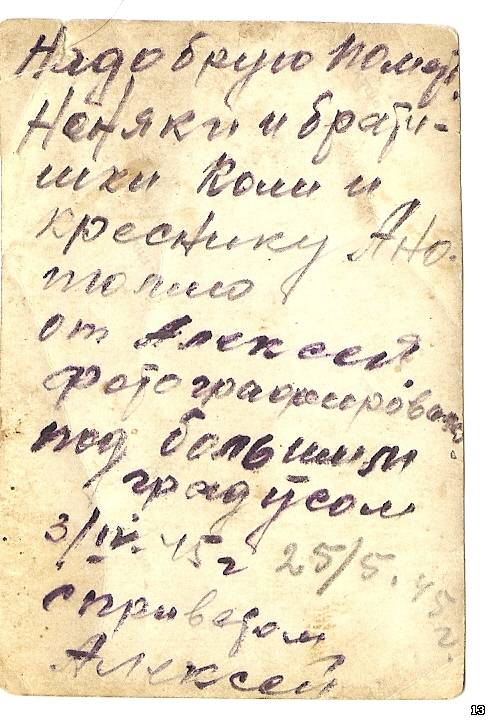 Надобрую помят.
Неняки и брати-
шки Коли и
креснику Ана.
толию
от Алексея
фотографировался
под большим
градусом
3/IV. 45 г 25/5. 45 г.
с приветом
Алексей
13